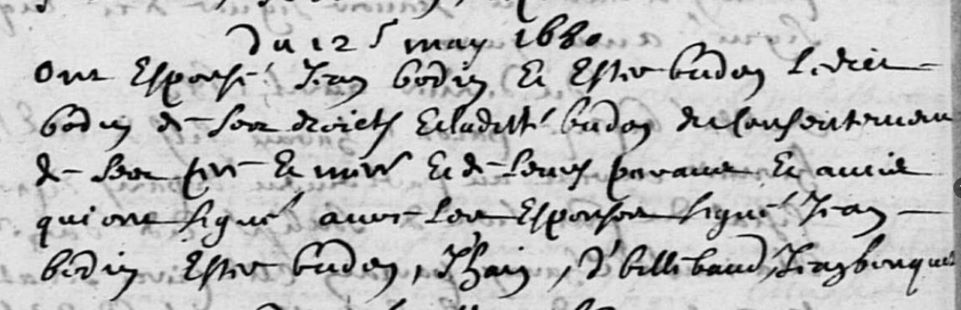 du 12e may 1680
Ont Esponsé Jean bodin Et Ester budon Ledict
bodin de ses droicts Et laditte budon du Consentemen
de ses pere Et mere Et de Leurs parans Et amis
qui ont signé avec Les Esponses signé Jean
bodin Ester budon, d'billibaud, Jean